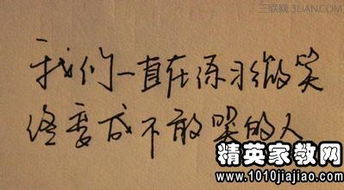 三联网 3LIAN.COM
我们一直在练习微笑
终变成不敢哭的人
精英家教网
www.1010jiajiao.com